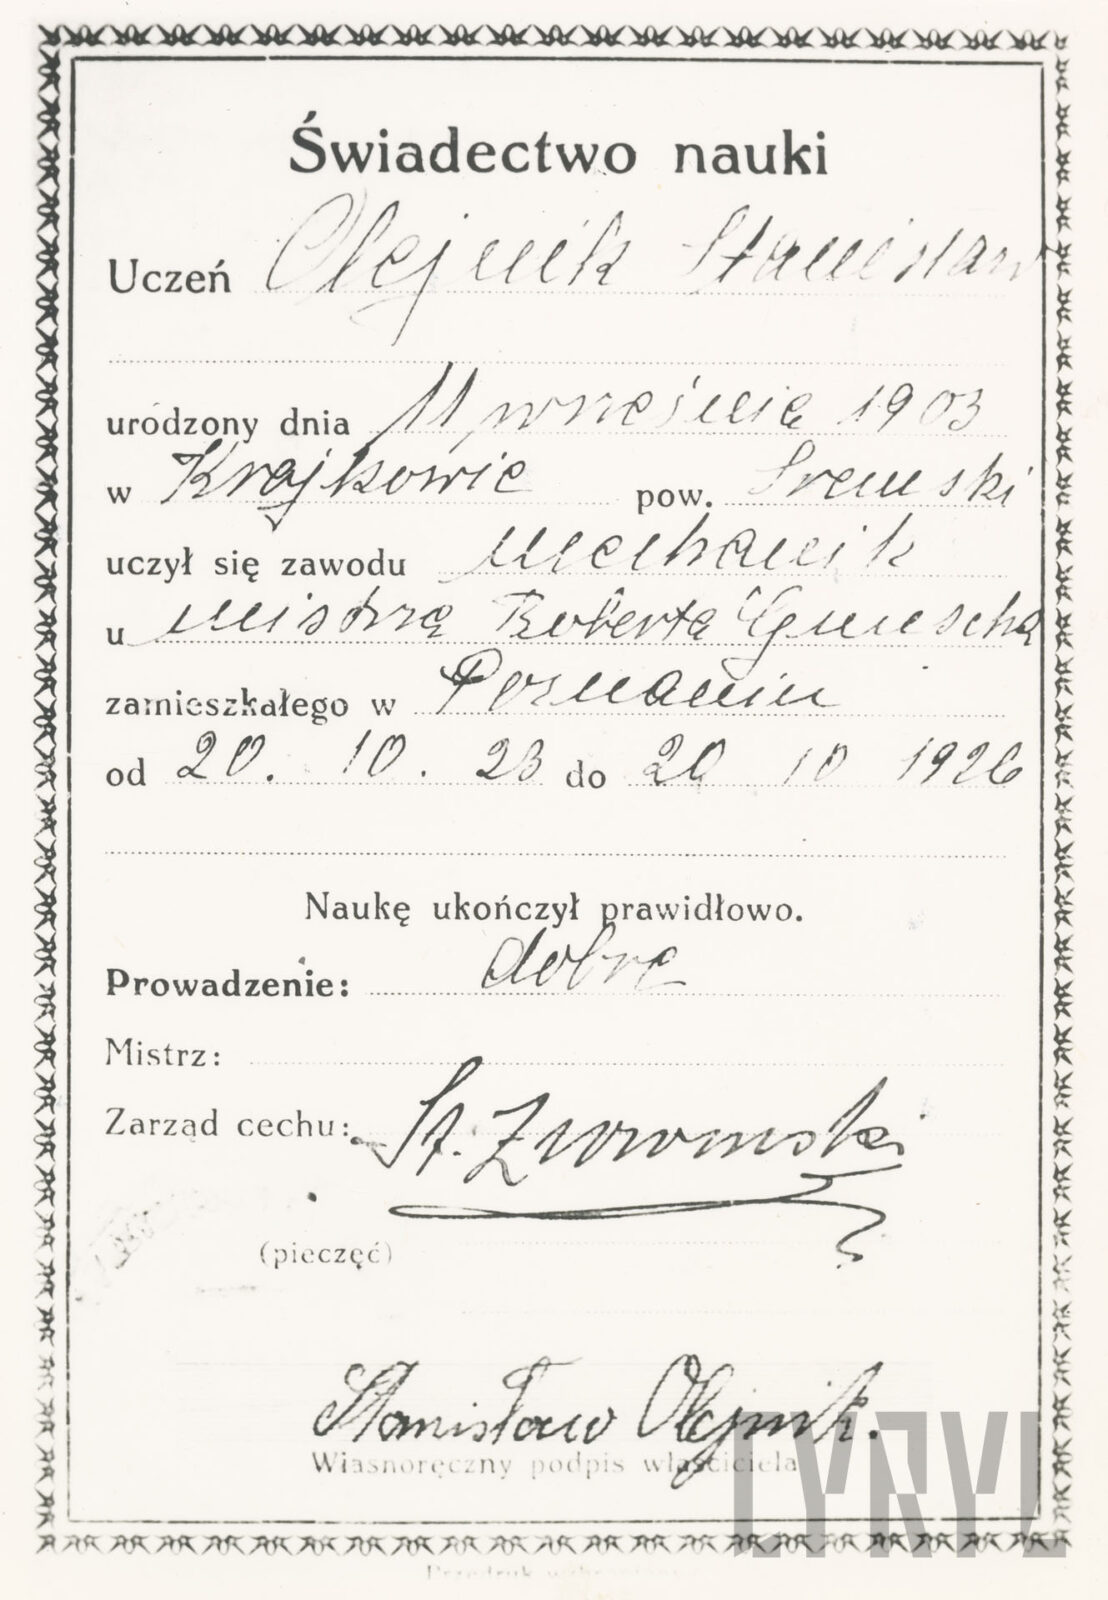 Świadectwo nauki
Uczeń Olejnik Stanisław
urodzony dnia 11 września 1903
w Krajkowie pow. Sremski
uczył się zawodu mechanik
u mistrza Roberta Gunscha
zamieszkałego w Poznaniu
od 20. 10. 23 do 20 10 1926
Naukę ukończył prawidłowo.
Prowadzenie: dobre
Mistrz:
Zarząd cechu: St.
(pieczęć)
Stanisław Olejnik.
Własnoręczny podpis właściciela
CYRYL
Przedruk